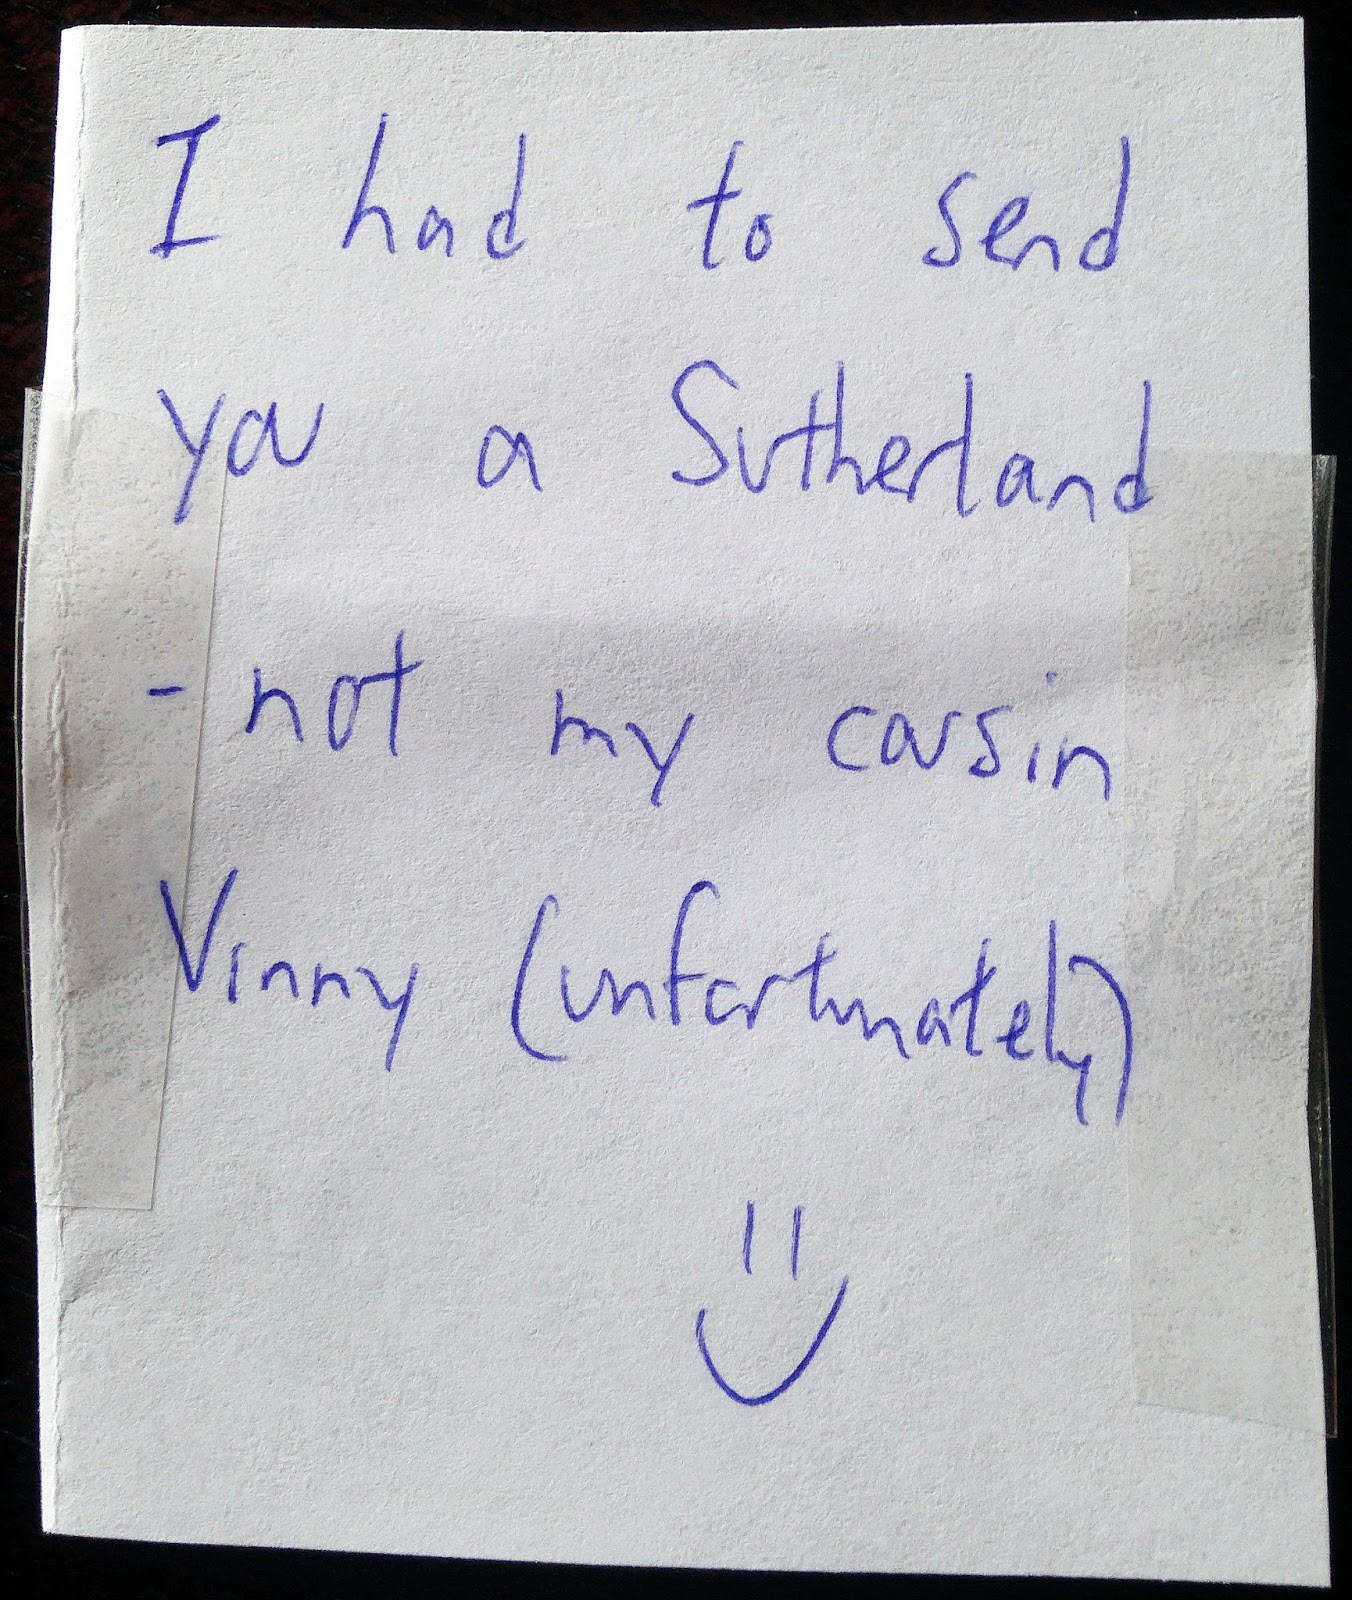 I had to send
you a Sutherland
- not my cousin
Vinny (unfortunately)